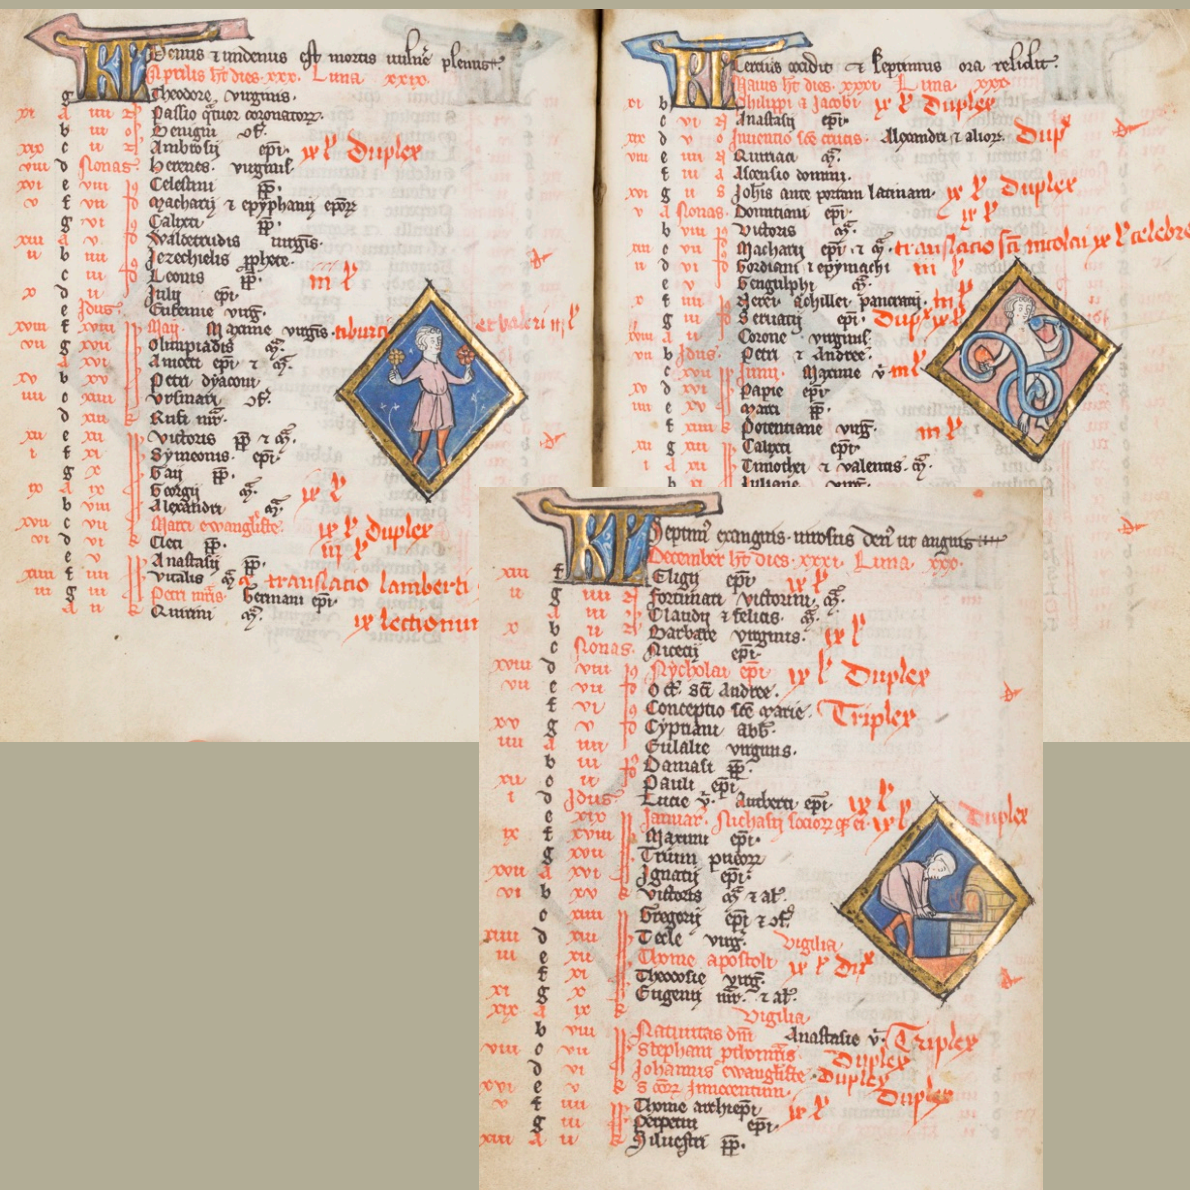 KL Denus & undenus est mortis vulnere plenus.
Aprilis ht dies. xxx. Luna xxix.
g Theodore virginis.
xi A iiii Passio qtuor coronatorz.
b iii Benigni
xix c ii Ambrosii epi. ix l' Duplex
viii d Nonas. Herenes virginis.
xvi e viii Id Celestini pp.
v f vii Macharij & epyphanij eporz
g vi Calixti pp.
xiii A v Waldetrudis virginis.
ii b iiii Jezechielis pphete.
c iii Leonis pp. iii l'
x d ii Julij epi.
e Idus. Eufemie virg.
xviii f xviii Maij. Maxime virginis. tiburcij et valeri iii l'
vii g xvii Olimpiadis
A xvi Aniceti epi &
xv b xv Petri dyaconi
iiii c xiiii Ursmari
d xiii Rufi mr.
xii e xii Victoris pp &
i f xi Symeonis. epi.
g x Gaij pp.
ix A ix Georgij ix l'
b viii Alexandri
xvii c vii Marci ewangliste. ix l' Duplex
vi d vi Cleti pp. iii l'
e v Anastasij pp.
xiiii f iiii Vitalis translatio lamberti
iii g iii Petri mris Germani epi.
A ii Quirini ix lectionum
KL Tercius occidit & septimus ora relidit.
Maius ht dies. xxxi Luna xxx.
xi b Philippi & Jacobi ix l' Duplex
c vi Anastasij epi.
xix d v Inventio sce crucis. Alexandri & alior. Dup
viii e iiii Quiriaci
f iii Ascensio domini.
xvi g ii Johis ante portam latinam. ix l' Duplex
v A Nonas. Domitiani epi. ix l'
b viii Victoris
xiii c vii Macharij epi & translatio sci nicolai ix l' celebre
ii d vi Gordiani & epymachi iii l'
e v Gengulphi
x f iiii Nerei Achillei pancracij. iii l'
g iii Servacij epi. Dupx ix l'
xviii A ii Corone virginis.
vii b Idus. Petri & Andree.
c xvii Junij. Maxime v. iii l'
xv d xvi Papie epi.
iiii e xv Marci pp.
f xiiii Potentiane virg. iii l'
xii g xiii Calixti epi.
i A xii Timothei & valentis.
Juliane virg.
KL Septimus exanguis. virosus denus ut anguis
December ht dies. xxxi. Luna xxx.
xiii f Eligij epi. ix l'
ii g iiii Fortunati victorini
A iii Claudij & felicis.
x b ii Barbare virginis. ix l'
c Nonas. Nicetij epi.
xviii d viii Nycholai epi ix l' Duplex
vii e vii Oct. sci Andree.
f vi Conceptio sce Marie. Triplex
xv g v Cypriani abb.
iiii A iiii Eulalie virginis.
b iii Damasi pp.
xii c ii Pauli epi
i d Idus. Lucie v. Autberti epi. ix l'
e xix Januar. Nichasij socior ix l' Duplex
ix f xviii Maximi epi.
g xvii Trium pueorz
xvii A xvi Ignatij epi.
vi b xv Victoris & al.
c xiiii Gregorij epi &
xiiii d xiii Tecle virg. Vigilia
iii e xii Thome apostoli ix l' Dup
f xi Theodosie virg.
xi g x Eugenij mr. & al.
xix A ix Vigilia
b viii Nativitas dni Anastasie v. Triplex
viii c vii Stephani pthomris. Duplex
d vi Johannis ewangliste. Duplex
xvi e v s corz Innocentum. Duplex
v f iiii Thome archiepi ix l'
g iii Perpetui epi.
xiii A ii Silvestri pp.